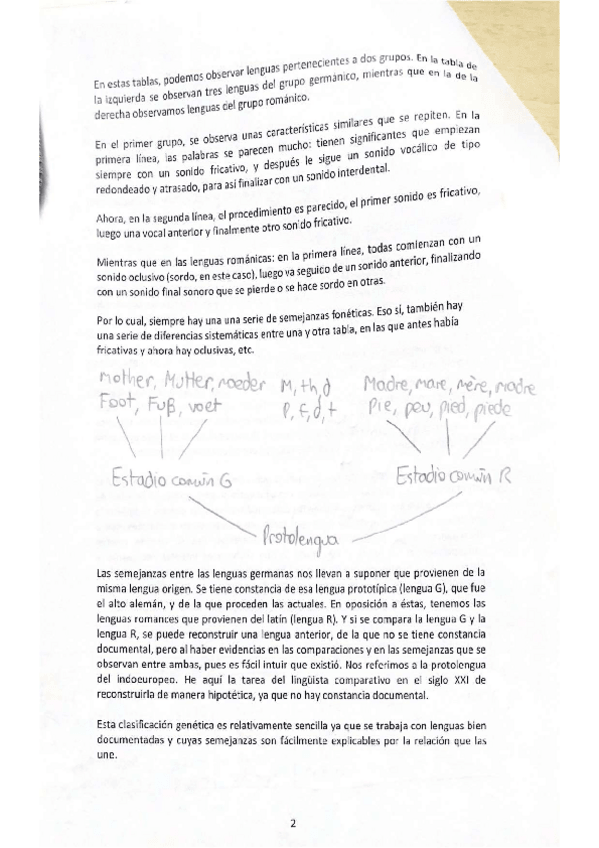 En estas tablas, podemos observar lenguas pertenecientes a dos grupos. En la tabla de
la izquierda se observan tres lenguas del grupo germánico, mientras que en la de la
derecha observamos lenguas del grupo románico.
En el primer grupo, se observa unas características similares que se repiten. En la
primera línea, las palabras se parecen mucho: tienen significantes que empiezan
siempre con un sonido fricativo, y después le sigue un sonido vocálico de tipo
redondeado y atrasado, para así finalizar con un sonido interdental.
Ahora, en la segunda línea, el procedimiento es parecido, el primer sonido es fricativo,
luego una vocal anterior y finalmente otro sonido fricativo.
Mientras que en las lenguas románicas: en la primera línea, todas comienzan con un
sonido oclusivo (sordo, en este caso), luego va seguico de un sonido anterior, finalizando
con un sonido final sonoro que se pierde o se hace sordo en otras.
Por lo cual, siempre hay una una serie de semejanzas fonéticas. Eso sí, también hay
una serie de diferencias sistemáticas entre una y otra tabla, en las que antes había
fricativas y ahora hay oclusivas, etc.
Mother, Mutter, moeder M, th, d Madre, mare, mère, madre
Foot, Fuß, voet p, f, d, t Pie, peu, pied, piede
Estadio común G Estadio común R
Protolengua
Las semejanzas entre las lenguas germanas nos llevan a suponer que provienen de la
misma lengua origen. Se tiene constancia de esa lengua prototípica (lengua G), que fue
el alto alemán, y de la que proceden las actuales. En oposición a éstas, tenemos las
lenguas romances que provienen del latín (lengua R). Y si se compara la lengua G y la
lengua R, se puede reconstruir una lengua anterior, de la que no se tiene constancia
documental, pero al haber evidencias en las comparaciones y en las semejanzas que se
observan entre ambas, pues es fácil intuir que existió. Nos referimos a la protolengua
del indoeuropeo. He aquí la tarea del lingüista comparativo en el siglo XXI de
reconstruirla de manera hipotética, ya que no hay constancia documental.
Esta clasificación genética es relativamente sencilla ya que se trabaja con lenguas bien
documentadas y cuyas semejanzas son fácilmente explicables por la relación que las
une.
2